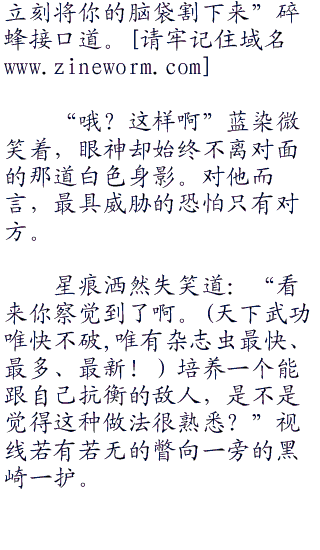 立刻将你的脑袋割下来”碎
蜂接口道。[请牢记住域名
www.zineworm.com]
“哦？这样啊”蓝染微
笑着，眼神却始终不离对面
的那道白色身影。对他而
言，最具威胁的恐怕只有对
方。
星痕洒然失笑道：“看
来你察觉到了啊。(天下武功
唯快不破,唯有杂志虫最快、
最多、最新！)培养一个能
跟自己抗衡的敌人，是不是
觉得这种做法很熟悉？”视
线若有若无的瞥向一旁的黑
崎一护。